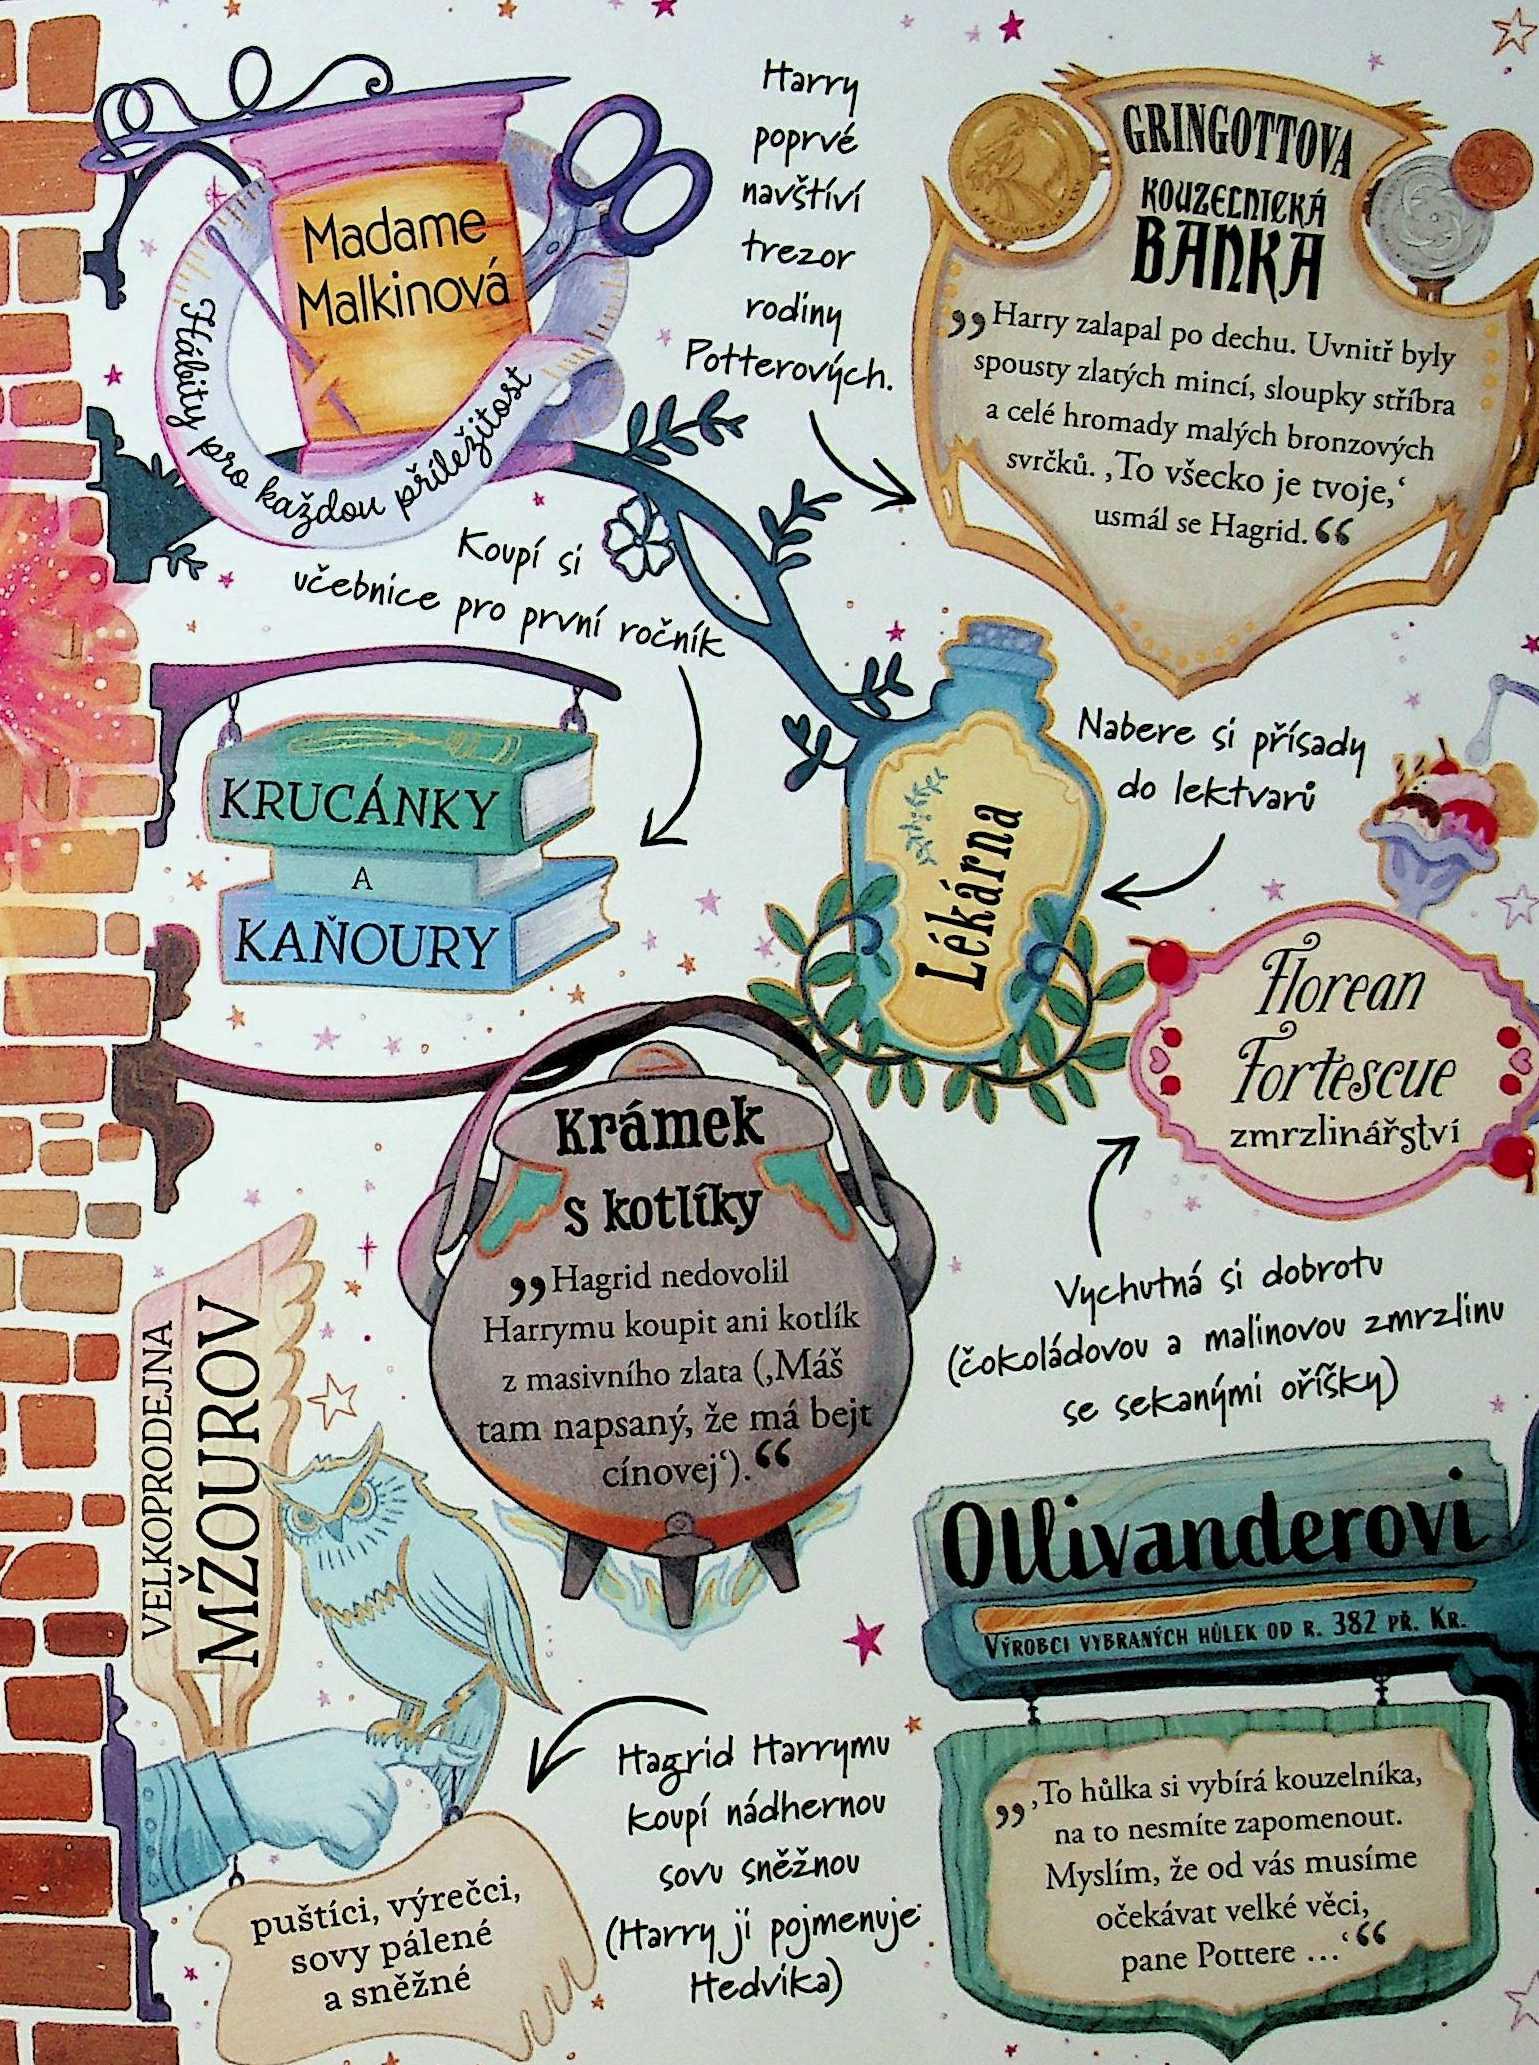 Madame
Malkinová
Hábity pro každou příležitost
Harry
poprvé
navštíví
trezor
rodiny
Potterových.
GRINGOTTOVA
KOUZELNICKÁ
BANKA
„Harry zalapal po dechu. Uvnitř byly
spousty zlatých mincí, sloupky stříbra
a celé hromady malých bronzových
svrčků. ‚To všecko je tvoje,‘
usmál se Hagrid.“
Koupí si
učebnice pro první ročník
KRUCÁNKY
A
KAŇOURY
Nabere si přísady
do lektvarů
Lékárna
Florean
Fortescue
zmrzlinářství
Vychutná si dobrotu
(čokoládovou a malinovou zmrzlinu
se sekanými oříšky)
Krámek
s kotlíky
„Hagrid nedovolil
Harrymu koupit ani kotlík
z masivního zlata (‚Máš
tam napsaný, že má bejt
cínovej‘).“
VELKOPRODEJNA
MŽOUROV
puštíci, výrečci,
sovy pálené
a sněžné
Hagrid Harrymu
koupí nádhernou
sovu sněžnou
(Harry jí pojmenuje
Hedvika)
Ollivanderovi
VÝROBCI VYBRANÝCH HŮLEK OD R. 382 PŘ. KR.
„‚To hůlka si vybírá kouzelníka,
na to nesmíte zapomenout.
Myslím, že od vás musíme
očekávat velké věci,
pane Pottere …‘“